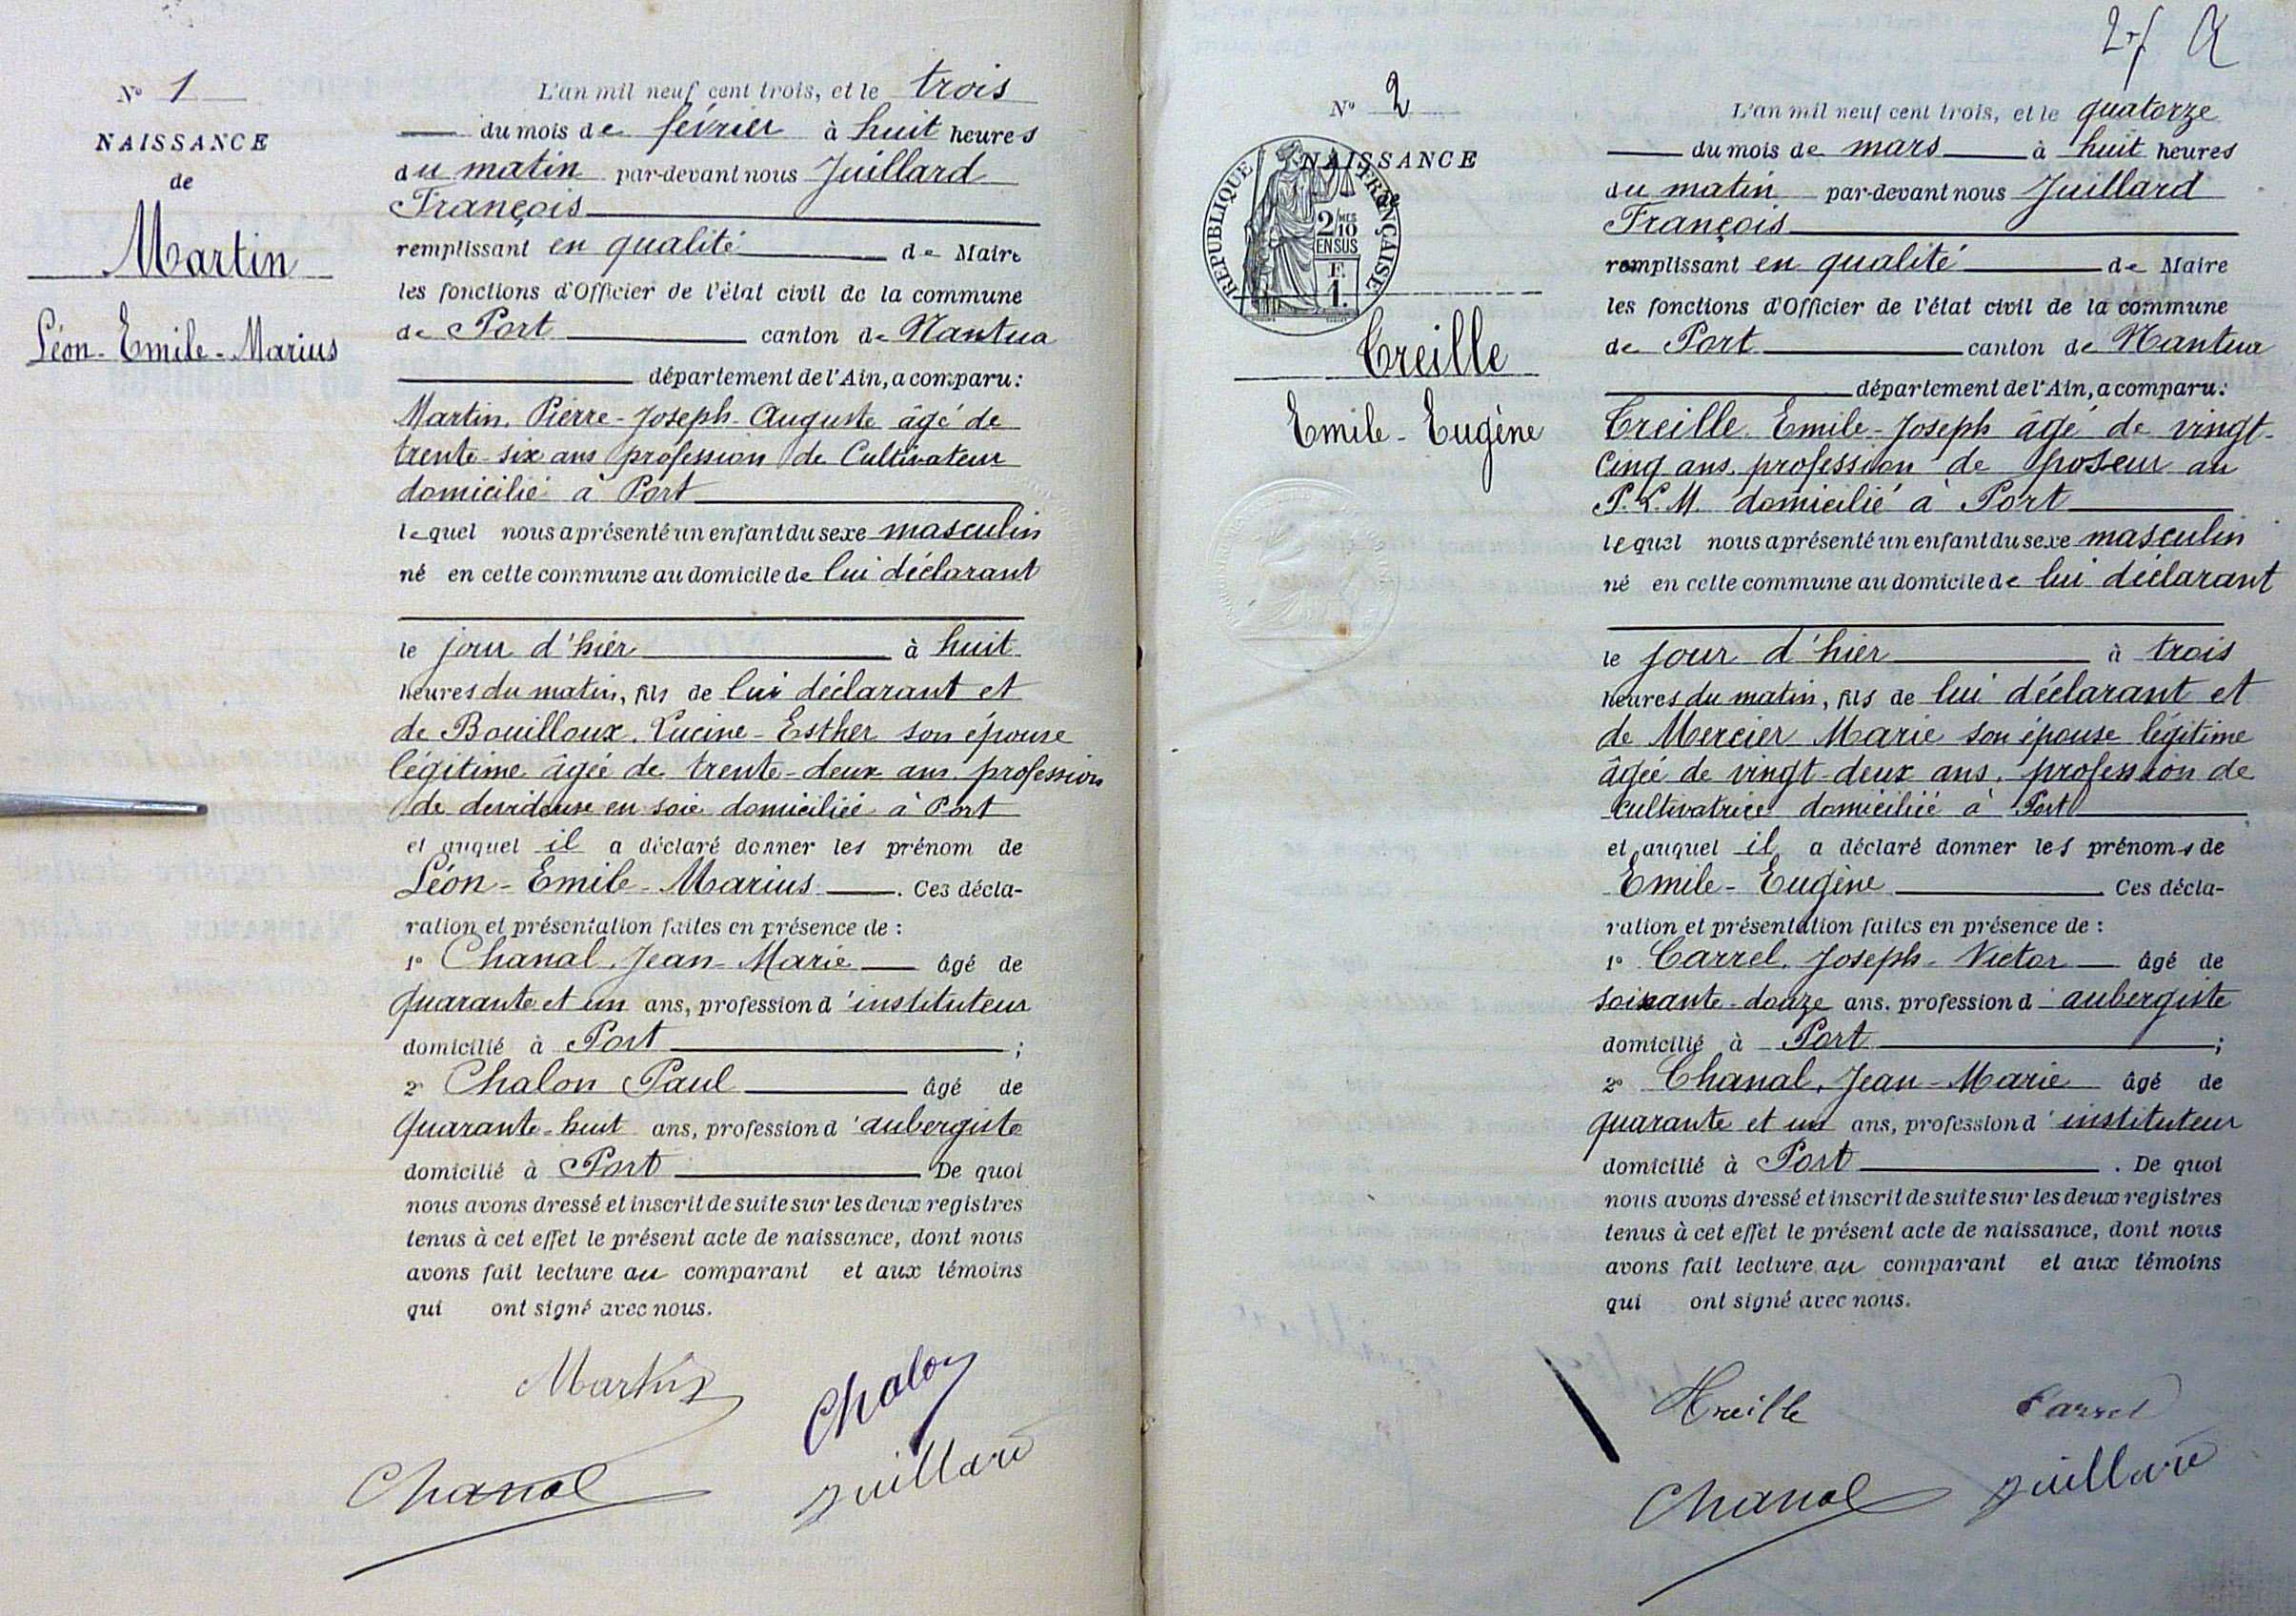 N° 1
NAISSANCE
de
Martin
Léon-Emile-Marius
L'an mil neuf cent trois, et le trois
du mois de février à huit heures
du matin par-devant nous Juillard
François
remplissant en qualité de Maire
les fonctions d'Officier de l'état civil de la commune
de Port canton de Nantua
département de l'Ain, a comparu:
Martin, Pierre-Joseph-Auguste âgé de
trente-six ans profession de Cultivateur
domicilié à Port
lequel nous a présenté un enfant du sexe masculin
né en cette commune au domicile de lui déclarant
le jour d'hier à huit
heures du matin, fils de lui déclarant et
de Bouilloux, Lucine-Esther son épouse
légitime âgée de trente-deux ans, profession
de devideuse en soie domiciliée à Port
et auquel il a déclaré donner les prénom de
Léon-Emile-Marius. Ces décla-
ration et présentation faites en présence de :
1° Chanal, Jean-Marie âgé de
quarante et un ans, profession d'instituteur
domicilié à Port ;
2° Chalon Paul âgé de
quarante-huit ans, profession d'aubergiste
domicilié à Port De quoi
nous avons dressé et inscrit de suite sur les deux registres
tenus à cet effet le présent acte de naissance, dont nous
avons fait lecture au comparant et aux témoins
qui ont signé avec nous.
Martin
Chalon
Chanal
Juillard
N° 2
NAISSANCE
de
RÉPUBLIQUE FRANÇAISE
2/10
EN SUS
F.
1.
Creille
Emile-Eugène
L'an mil neuf cent trois, et le quatorze
du mois de mars à huit heures
du matin par-devant nous Juillard
François
remplissant en qualité de Maire
les fonctions d'Officier de l'état civil de la commune
de Port canton de Nantua
département de l'Ain, a comparu:
Creille Emile-Joseph âgé de vingt-
cinq ans, profession de poseur au
P.L.M. domicilié à Port
lequel nous a présenté un enfant du sexe masculin
né en cette commune au domicile de lui déclarant
le jour d'hier à trois
heures du matin, fils de lui déclarant et
de Mercier Marie son épouse légitime
âgée de vingt-deux ans, profession de
cultivatrice domiciliée à Port
et auquel il a déclaré donner les prénoms de
Emile-Eugène Ces décla-
ration et présentation faites en présence de :
1° Carrel, Joseph-Victor âgé de
soixante-douze ans, profession d'aubergiste
domicilié à Port ;
2° Chanal, Jean-Marie âgé de
quarante et un ans, profession d'instituteur
domicilié à Port . De quoi
nous avons dressé et inscrit de suite sur les deux registres
tenus à cet effet le présent acte de naissance, dont nous
avons fait lecture au comparant et aux témoins
qui ont signé avec nous.
Creille
Carrel
Chanal
Juillard